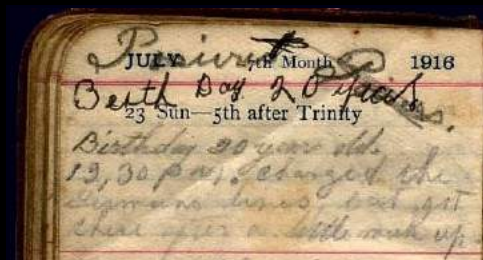 JULY 7th Month 1916
Berth Day 20 years.
23 Sun—5th after Trinity
Birthday 20 years old.
12,30 p.m. charged the
Germans lines, but got
there after a little mush up